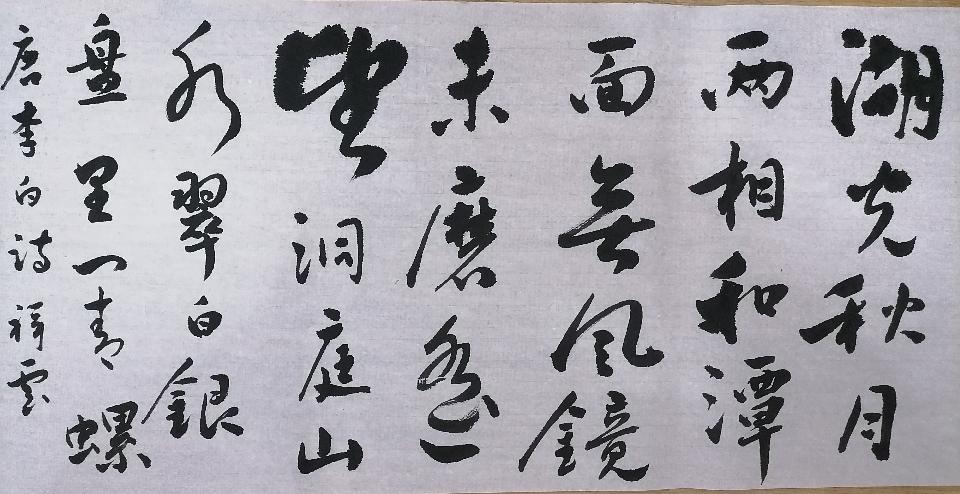 湖光秋月
两相和潭
面無风鏡
未磨遥
望洞庭山
水翠白銀
盘里一青螺
唐李白诗祥雲